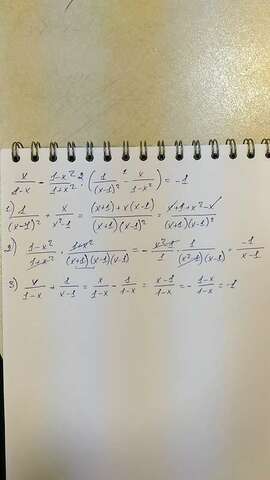 x/(1-x) - (1-x²)/(1+x²) · (1/(x-1)² - x/(1-x²)) = -1
1) 1/(x-1)² + x/(x²-1) = ((x+1)+x(x-1))/((x+1)(x-1)²) = (x+1+x²-x)/((x+1)(x-1)²)
2) (1-x²)/(1+x²) · (1+x²)/((x+1)(x-1)(x-1)) = - (x²-1)/1 · 1/((x²-1)(x-1)) = -1/(x-1)
3) x/(1-x) + 1/(x-1) = x/(1-x) - 1/(1-x) = (x-1)/(1-x) = - (1-x)/(1-x) = -1